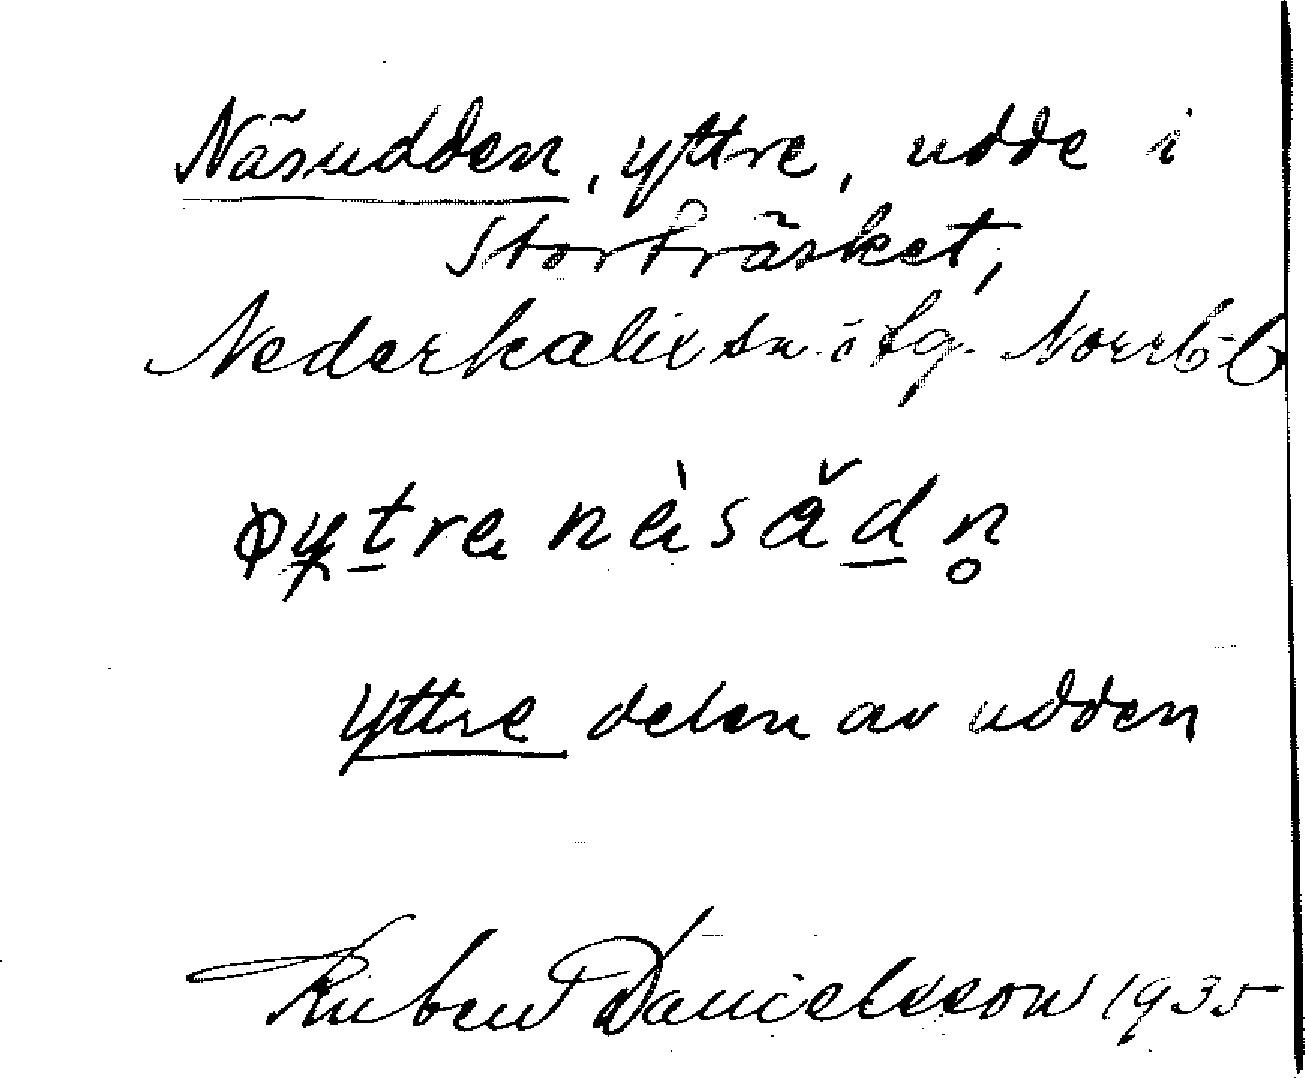 Näsudden, yttre, udde i
Storträsket,
Nederkalix sn. ö tg. Norrb. l
yttre delen av udden
Ruben Danielsson 1935